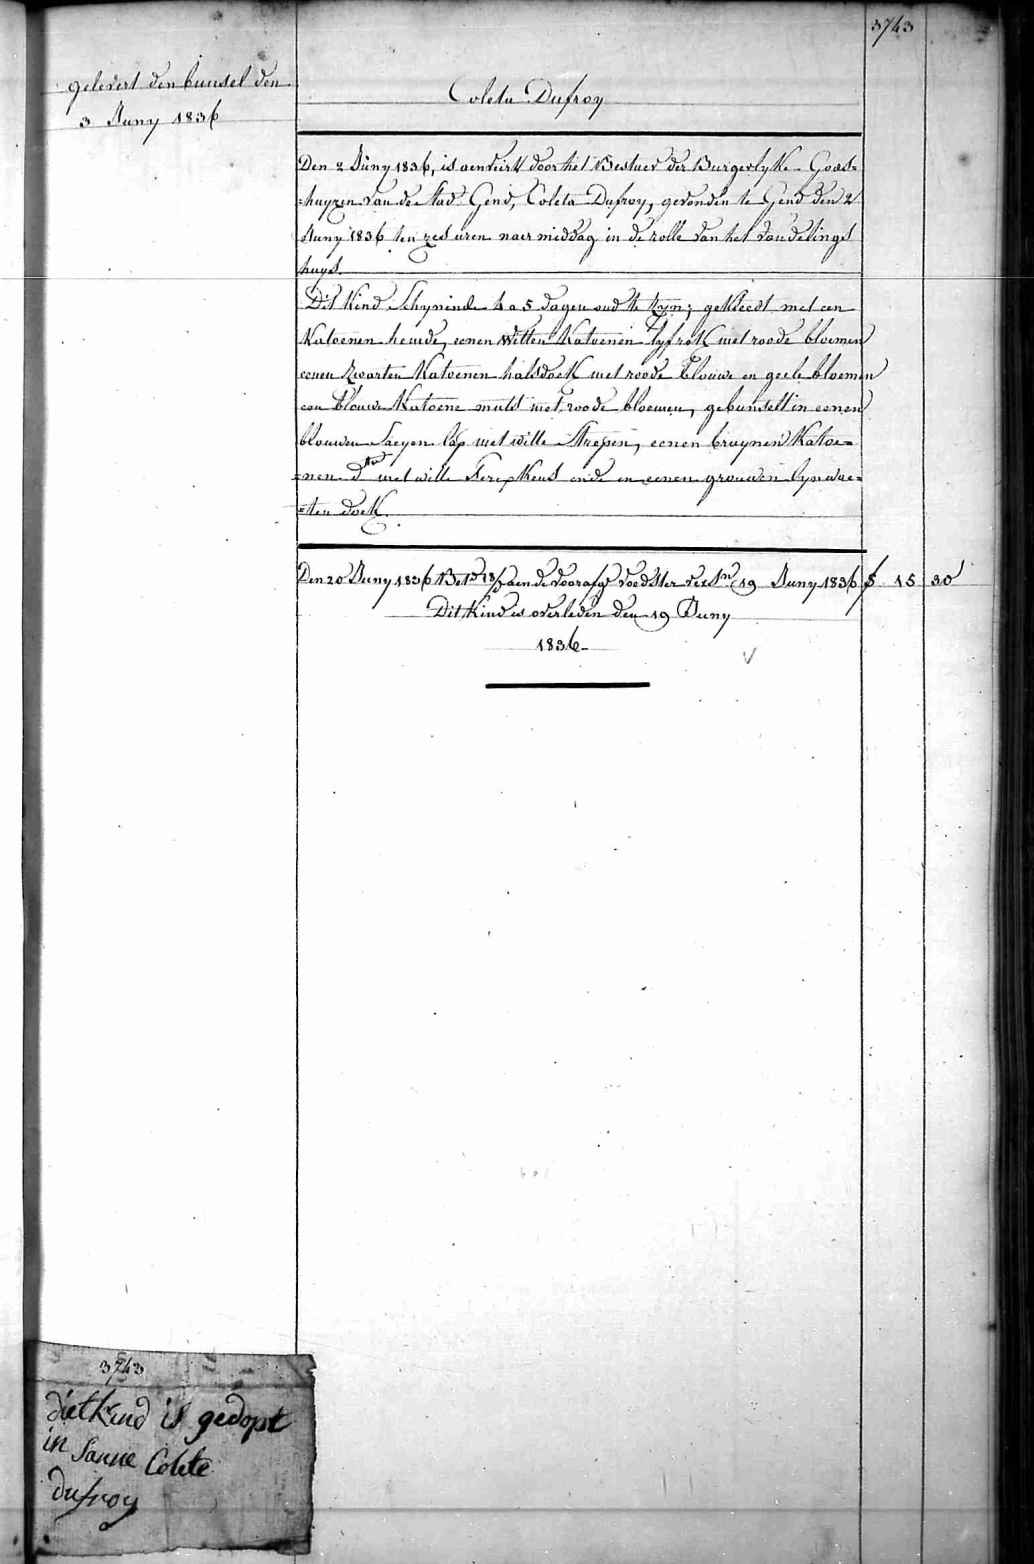 3743
gelevert den bunsel den
3 Juny 1836
Coleta Dufroy
Den 2 Juny 1836, is aenveirt door het Bestuer der Burgerlyke Gods=
=huyzen van de Stad Gend, Coleta Dufroy, gevonden te Gend den 2
Juny 1836 ten zes uren naer middag in de rolle van het vondelings
huys.
Dit Kind Schynende 4 a 5 dagen oud te zyn; gekleedt met een
Katoenen hemde, eenen witten Katoenen lyfrok met roode bloemen
eenen zwarten Katoenen halsdoek met roode blouwe en geele bloemen
een blouwe Katoene muts met roode bloemen, gebunselt in eenen
blouwen Saeyen lap met witte Strepen, eenen bruynen Katoe=
=nen d.^ten met witte Streepkens ende in eenen grouwen lynwae=
=ten doek.
Den 20 Juny 1836 aen de voedster 19 Juny 1836 f 15 30
Dit Kind is overleden den 19 Juny
1836-
3743
diet kind is gedopt
in Sanne Colete
dufroy